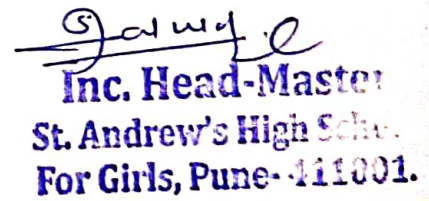 Inc. Head-Master
St. Andrew's High School
For Girls, Pune- 411001.